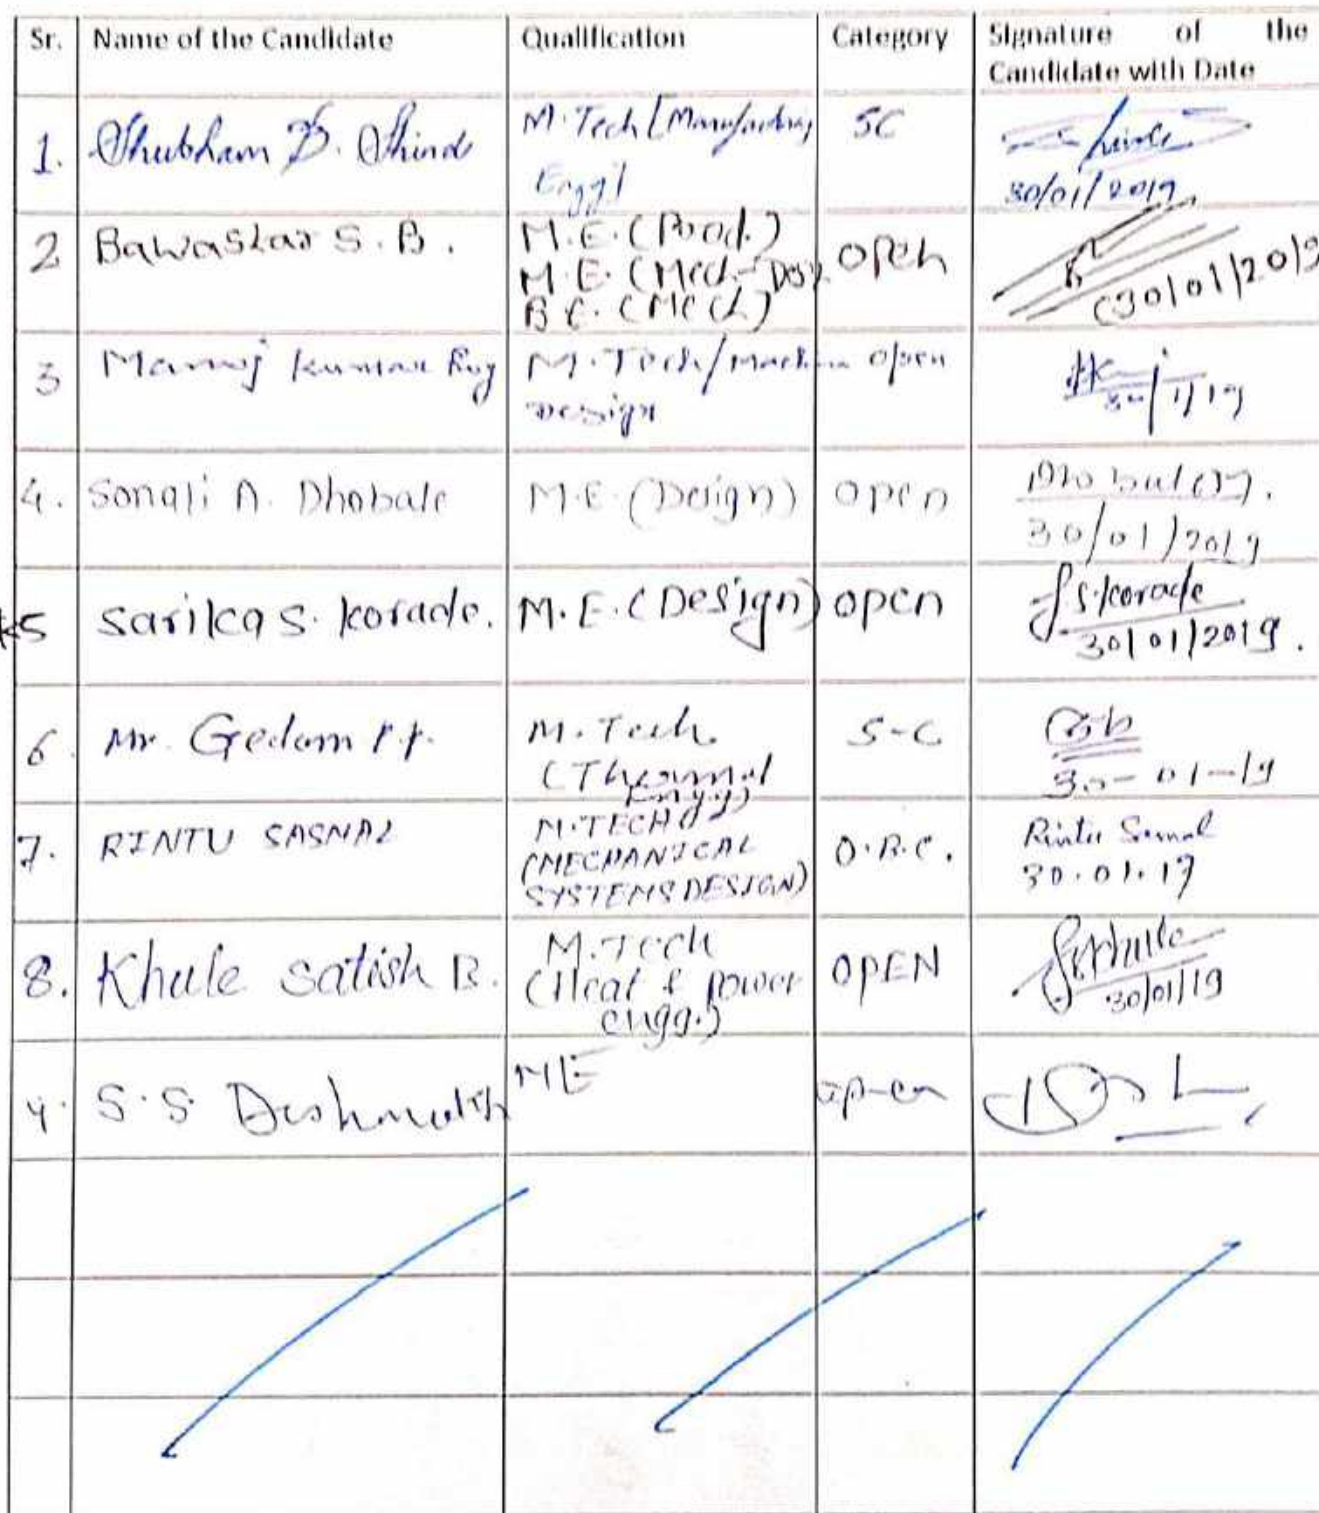 Sr. Name of the Candidate Qualification Category Signature of the
Candidate with Date
1. Shubham D. Shinde M.Tech [Manufacturing SC
Engg]
30/01/2019
2 Bawaskar S.B. M.E. (Prod.) open
M.E. (Mech-Des)
B.E. (Mech)
(30/01/2019
3 Manoj Kumar M.Tech/Machine open
Design
30/1/19
4. Sonali A. Dhobale M.E. (Design) open
30/01/2019
5 Sarika S. Korade. M.E. (Design) open S.Korade
30/01/2019.
6. Mr. Gedam P.P. M.Tech. S-C
(Thermal
Engg)
30-01-19
7. RINTU SASMAL M.TECH O.B.C. Rintu Sasmal
(MECHANICAL 30.01.19
SYSTEMS DESIGN)
8. Khule Satish B. M.Tech OPEN
(Heat & Power
engg.)
30/01/19
S.S Deshmukh ME open